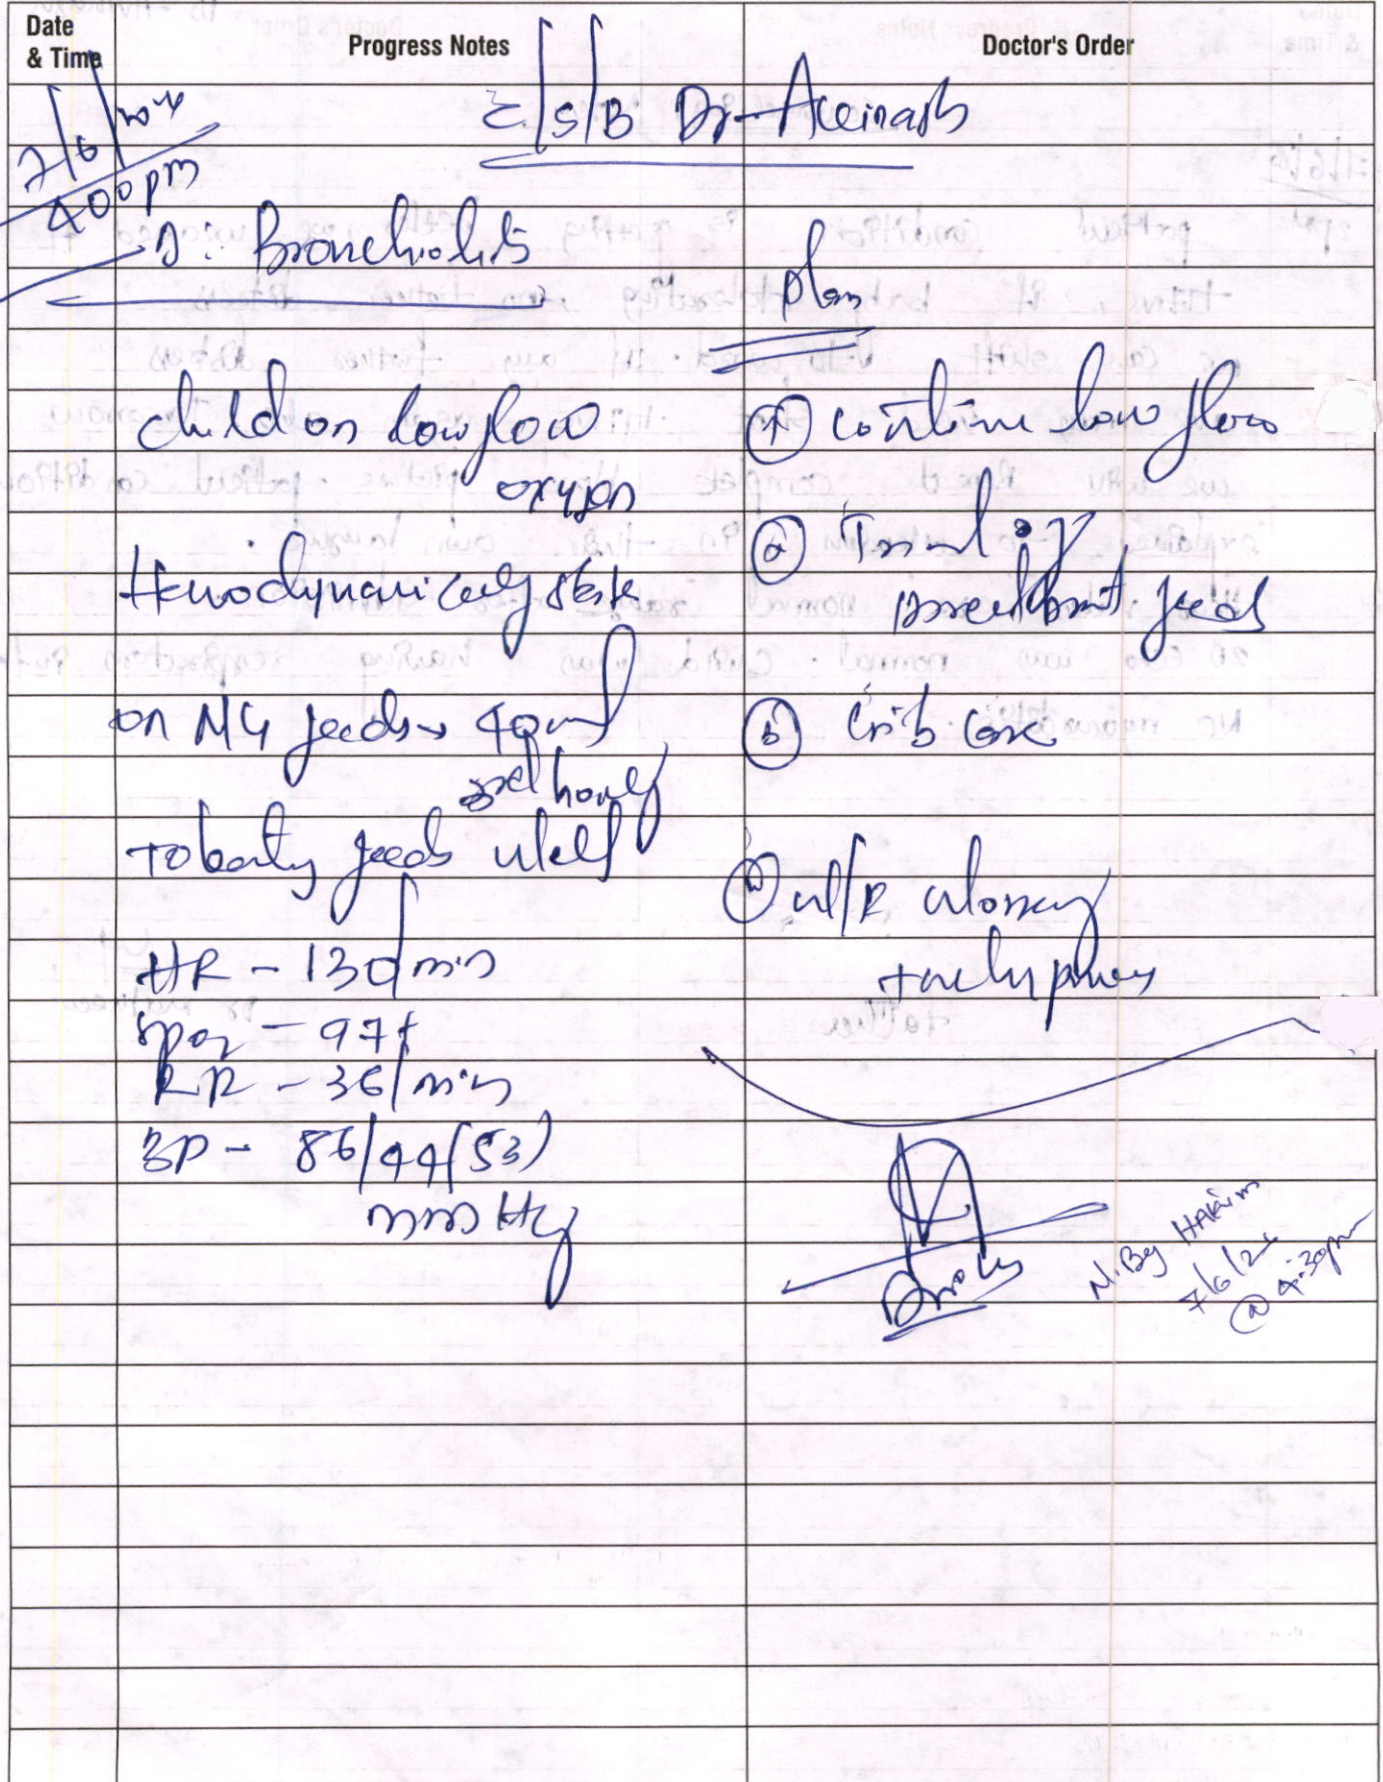 Date
& Time
Progress Notes
Doctor's Order
7/6/2024
400pm
C/S/B Dr-Avinash
D: Bronchiolitis
Plan
child on low flow
oxygen
Hemodynamically stable
on NG feeds 40ml
2nd hourly
Tolerating feeds well
HR - 130/min
SpO2 - 97%
RR - 36/min
BP - 86/44(53)
mmHg
continue low flow
Trial of
breathfeed feed
Crib care
w/f worsening
tachypnea
N. By HAKim
7/6/24
@ 4:30pm